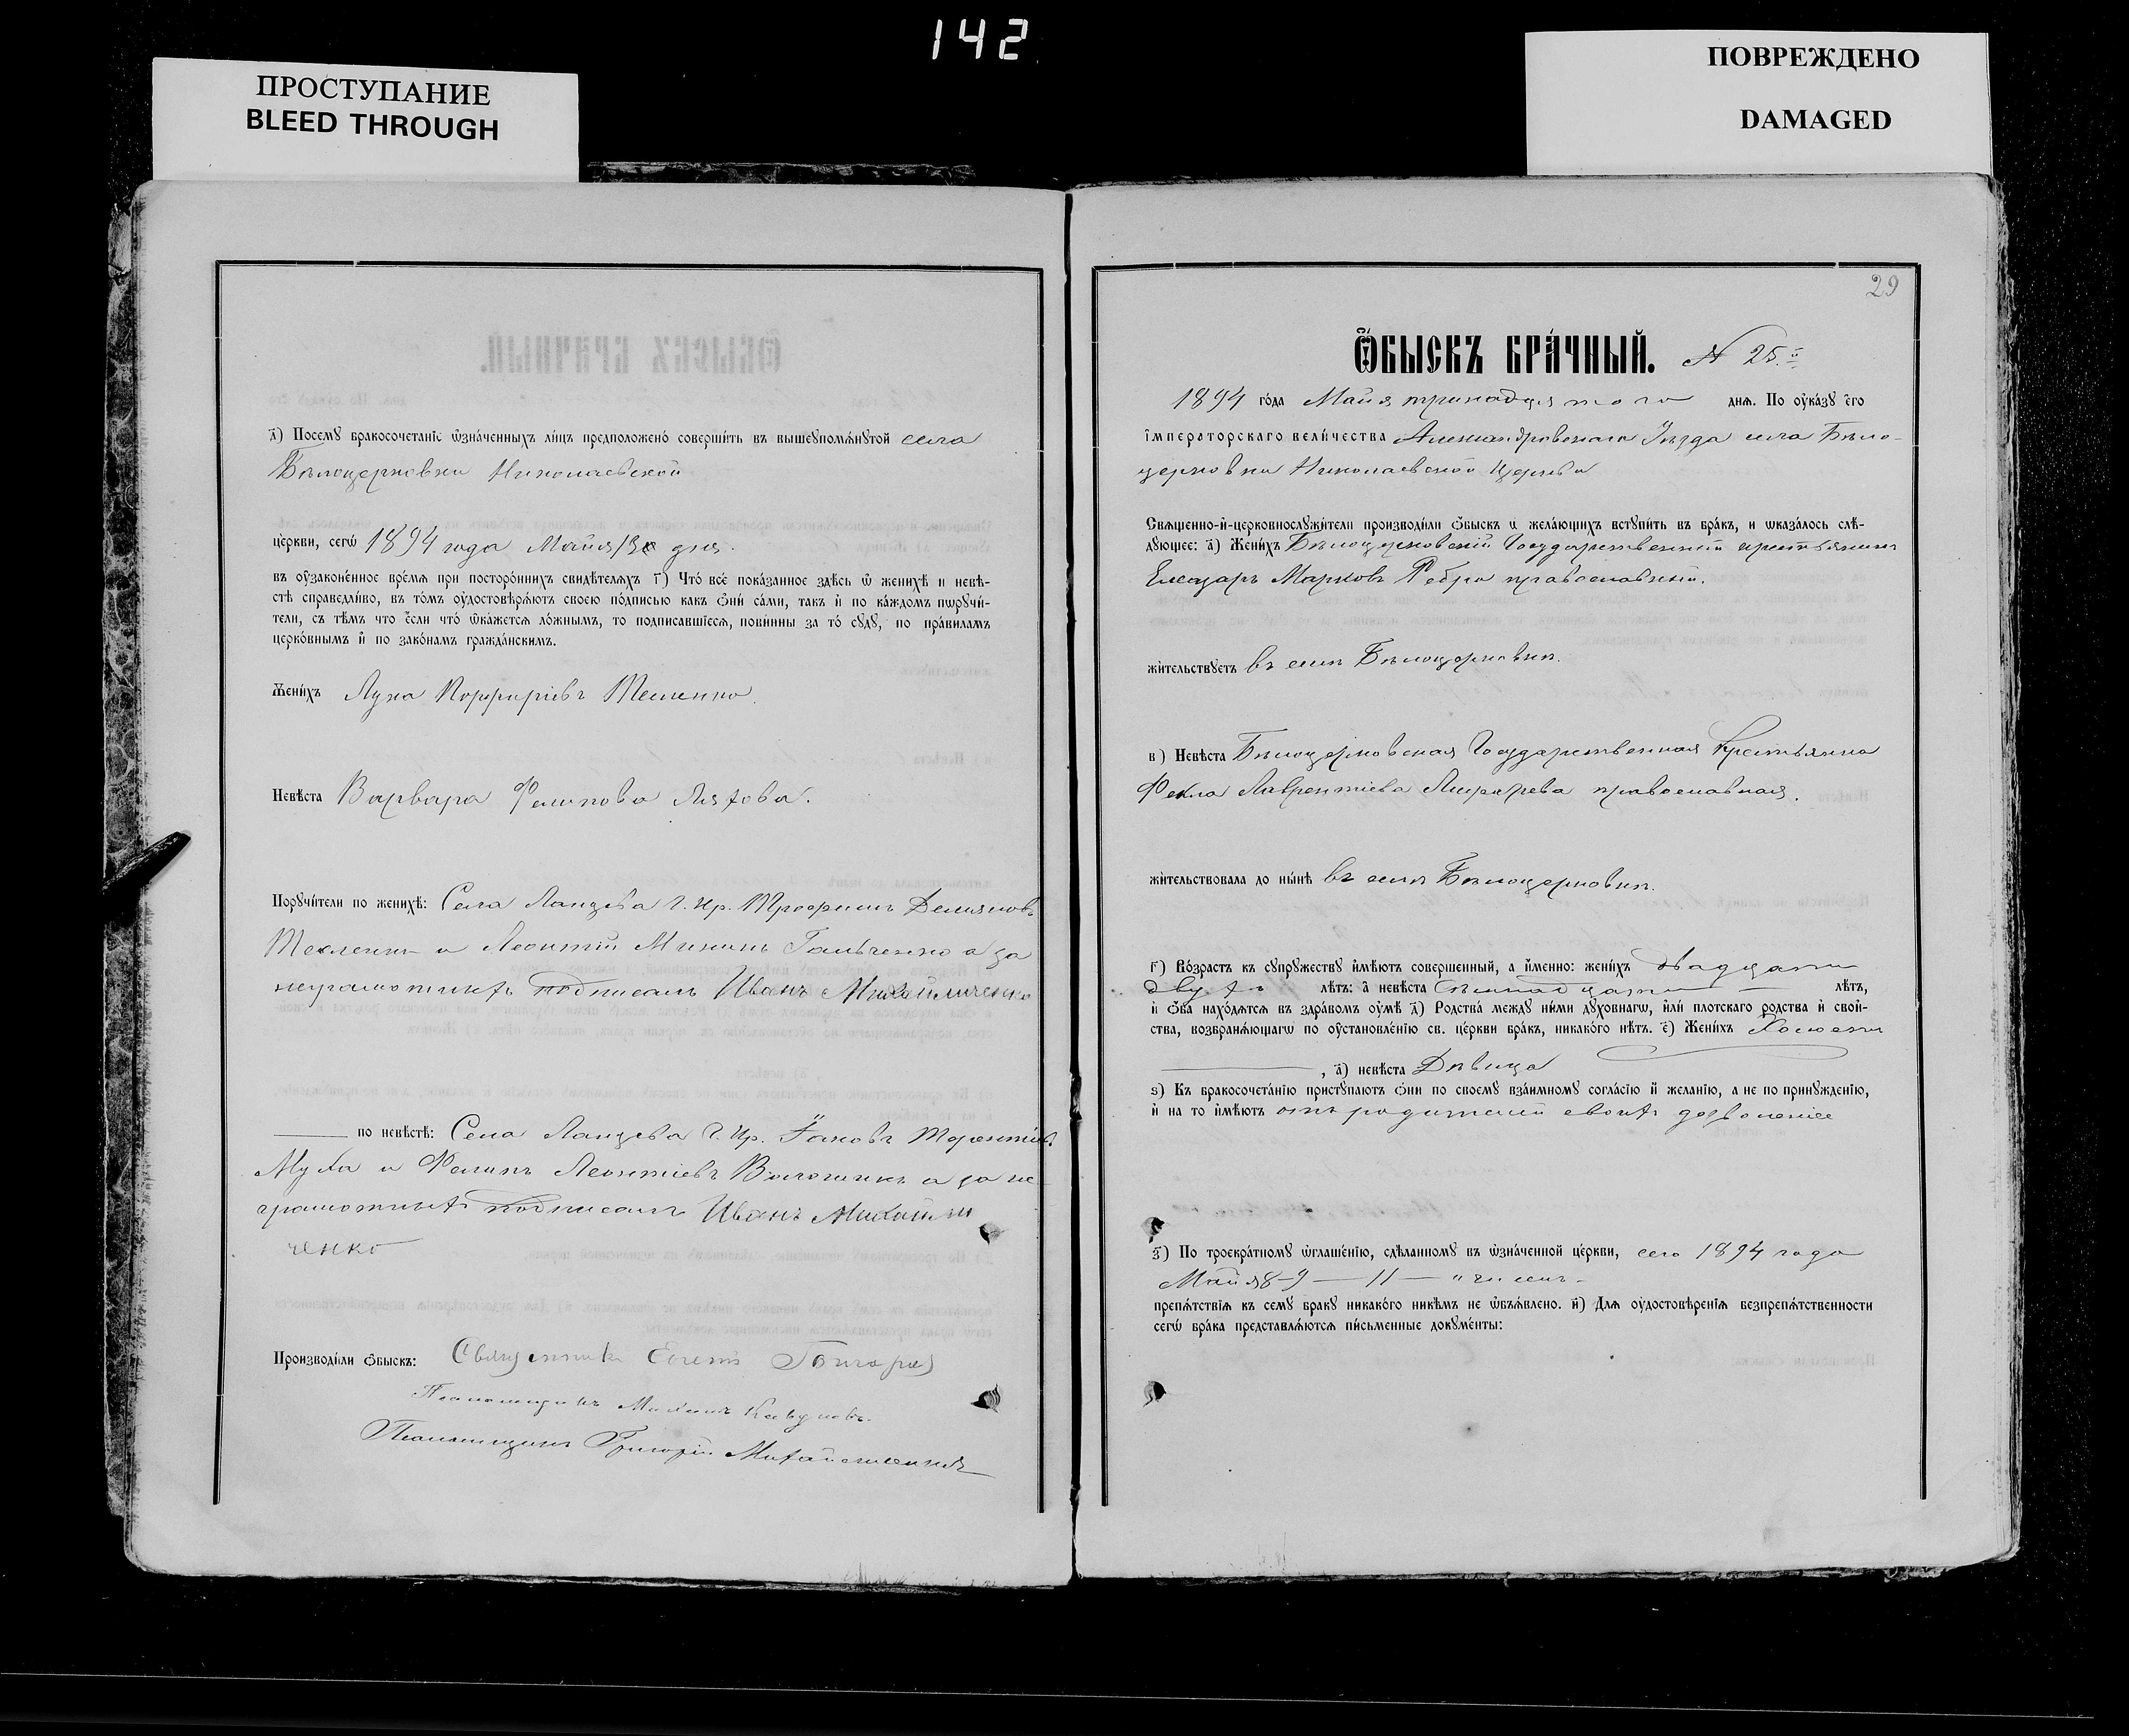 142
ПРОСТУПАНИЕ
BLEED THROUGH
ПОВРЕЖДЕНО
DAMAGED
д҃) Посемꙋ бракосочетанїе ѡзна́ченныхъ ли́цъ предположено̀ соверши́ть въ вышеꙋпомѧ́нꙋтой села
Бѣлоцерковки Николаевской
це́ркви, сегѡ̀ 1894 года Майя 13 дня.
въ оу҆зако́ненное вре́мѧ при посторо́ннихъ свидѣ́телѧхъ г҃) Что̀ всѐ пока́занное здѣ́сь ѡ҆ женихѣ̀ и невѣ́-
стѣ справедли́во, въ то́мъ оу҆достовѣрѧ́ютъ своею по́дписью какъ ѻ҆нѝ са́ми, такъ и҆ по ка́ждомъ порꙋчи́-
тели, съ тѣ́мъ что е҆́сли что̀ ѡ҆ка́жетсѧ ло́жнымъ, то подписавшїесѧ, пови́нны за то̀ сꙋдꙋ̀, по пра́виламъ
церко́внымъ и҆ по зако́намъ гражда́нскимъ.
Жени́хъ Лука Порфиріевъ Тесленко.
Невѣ́ста Варвара Филипова Ляхова.
Порꙋчи́тели по женихѣ̀: Села Ланцева Г. Кр. Трофимъ Демяновъ
Тесленко и Леонтій Мининъ Гальченко а за
неграмотныхъ подписалъ Иванъ Михайличенко
по невѣ́стѣ: Села Ланцева Г. Кр. Іаковъ Терентіев.
Муха и Филипъ Леонтіевъ а за не
грамотныхъ подписалъ Иванъ Михайли
ченко
Производи́ли ѻ҆́быскъ: Священникъ
Псаломщикъ Михаилъ
Псаломщикъ Григорій Михайличенко
29
Ѻ҆́БЫСКЪ БРА́ЧНЫЙ. № 25.й
1894 го́да Майя тринадцятого днѧ. По оу҆ка́зꙋ є҆гѡ̀
і҆мператорскаго вели́чества Александровскаго Уѣзда села Бѣло-
церковки Николаевской Церкви
Свѧщенно-и҆-церковнослꙋжи́тели производи́ли ѻ҆́быскъ ѡ҆ жела́ющихъ встꙋпи́ть въ бра́къ, и ѡказа́лось слѣ́-
дꙋющее: а҃) Жени́хъ Бѣлоцерковскій Государственный крестьянинъ
Елеазаръ Марковъ Ребро православный.
жи́тельствꙋетъ въ селѣ Бѣлоцерковкѣ.
в҃) Невѣ́ста Бѣлоцерковская Государственная Крестьянка
Фекла Лаврентіева православная.
жи́тельствовала до ны́нѣ въ селѣ Бѣлоцерковкѣ.
г҃) Во́зрастъ къ сꙋпрꙋжествꙋ и҆мѣ́ютъ совершенный, а и҆́менно: жени́хъ двадцати
двухъ лѣ́тъ: а҆ невѣ́ста лѣ́тъ,
и҆ ѻ҆́ба нахо́дѧтсѧ въ здра́вомъ оу҆мѣ̀ д҃) Родства̀ междꙋ ни́ми дꙋховнагѡ, и҆лѝ плотскаго родства и҆ свой-
ства, возбранѧ́ющагѡ по оу҆становле́нїю св. це́ркви бра́къ, никако́го нѣ́тъ. е҃) Жени́хъ Холостъ
, а҆) невѣ́ста Дѣвица
ѕ҃) Къ бракосочета́нїю пристꙋпа́ютъ ѻ҆нѝ по своемꙋ взаи́мномꙋ согла́сїю и҆ жела́нїю, а не по принꙋжде́нїю,
и҆ на то и҆мѣ́ютъ отъ родителей своихъ дозволеніе
з҃) По троекра́тномꙋ ѡ҆глаше́нїю, сдѣ́ланномꙋ въ ѡзна́ченной це́ркви, сего 1894 года
Майя 8-9 — 11 — "
препѧ́тствїѧ къ семꙋ̀ бракꙋ никако́го никѣ́мъ не ѡ҆б̾ѧ́влено. и҃) Длѧ оу҆достовѣ́ренїѧ безпрепѧ́тственности
сегѡ̀ бра́ка представлѧ́ютсѧ пи́сьменные докꙋме́нты: